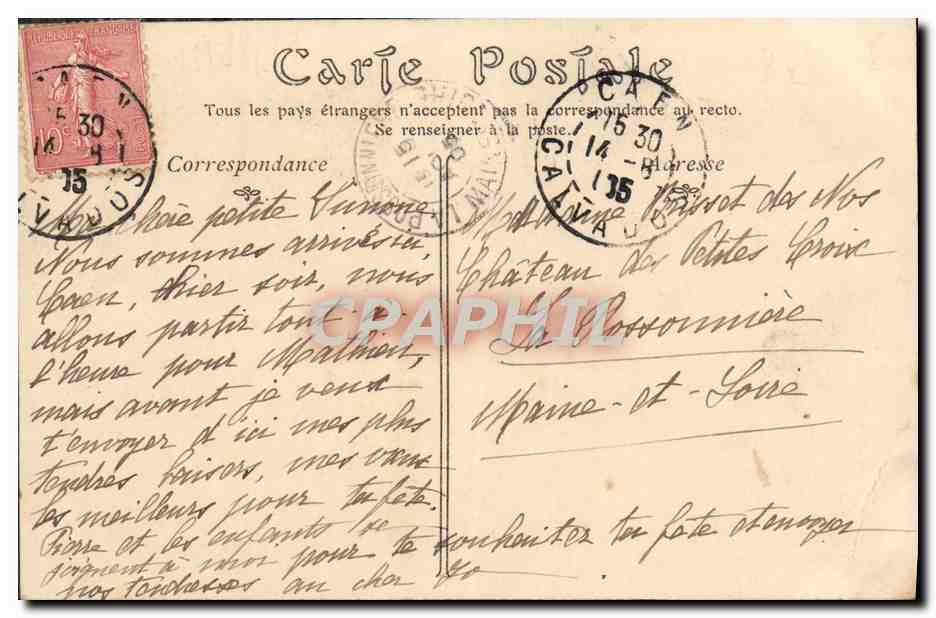 RÉPUBLIQUE FRANÇAISE
10c
Carte Postale
Tous les pays étrangers n'acceptent pas la correspondance au recto.
Se renseigner à la poste.
Correspondance
Adresse
CAEN
15 30
14 -8
05
CALVADOS
CAEN
15 30
14 -8
05
CALVADOS
Ma chère petite Simone
Nous sommes arrivés ici,
Caen, hier soir, nous
allons partir tout à
l'heure pour Mathieu,
mais avant je veux
t'envoyer d'ici mes plus
tendres baisers, mes vœux
les meilleurs pour ta fête.
Pierre et les enfants se
joignent à moi pour te souhaiter ta fête et envoyer
nos tendresses au cher
Madame des Nos
Château des Petites Croix
La Possonnière
Maine-et-Loire
CPAPHIL